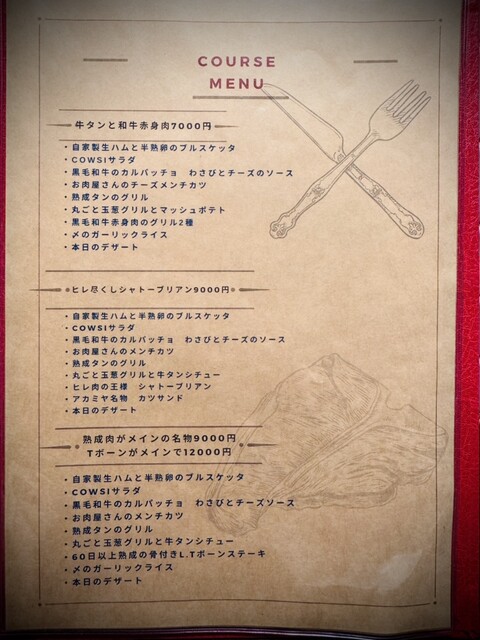 COURSE
MENU
牛タンと和牛赤身肉7000円
・自家製生ハムと半熟卵のブルスケッタ
・COWSIサラダ
・黒毛和牛のカルパッチョ　わさびとチーズのソース
・お肉屋さんのチーズメンチカツ
・熟成タンのグリル
・丸ごと玉葱グリルとマッシュポテト
・黒毛和牛赤身肉のグリル2種
・〆のガーリックライス
・本日のデザート
ヒレ尽くしシャトーブリアン9000円
・自家製生ハムと半熟卵のブルスケッタ
・COWSIサラダ
・黒毛和牛のカルパッチョ　わさびとチーズのソース
・お肉屋さんのメンチカツ
・熟成タンのグリル
・丸ごと玉葱グリルと牛タンシチュー
・ヒレ肉の王様　シャトーブリアン
・アカミヤ名物　カツサンド
・本日のデザート
熟成肉がメインの名物9000円
Tボーンがメインで12000円
・自家製生ハムと半熟卵のブルスケッタ
・COWSIサラダ
・黒毛和牛のカルパッチョ　わさびとチーズソース
・お肉屋さんのメンチカツ
・熟成タンのグリル
・丸ごと玉葱グリルと牛タンシチュー
・60日以上熟成の骨付きL.Tボーンステーキ
・〆のガーリックライス
・本日のデザート